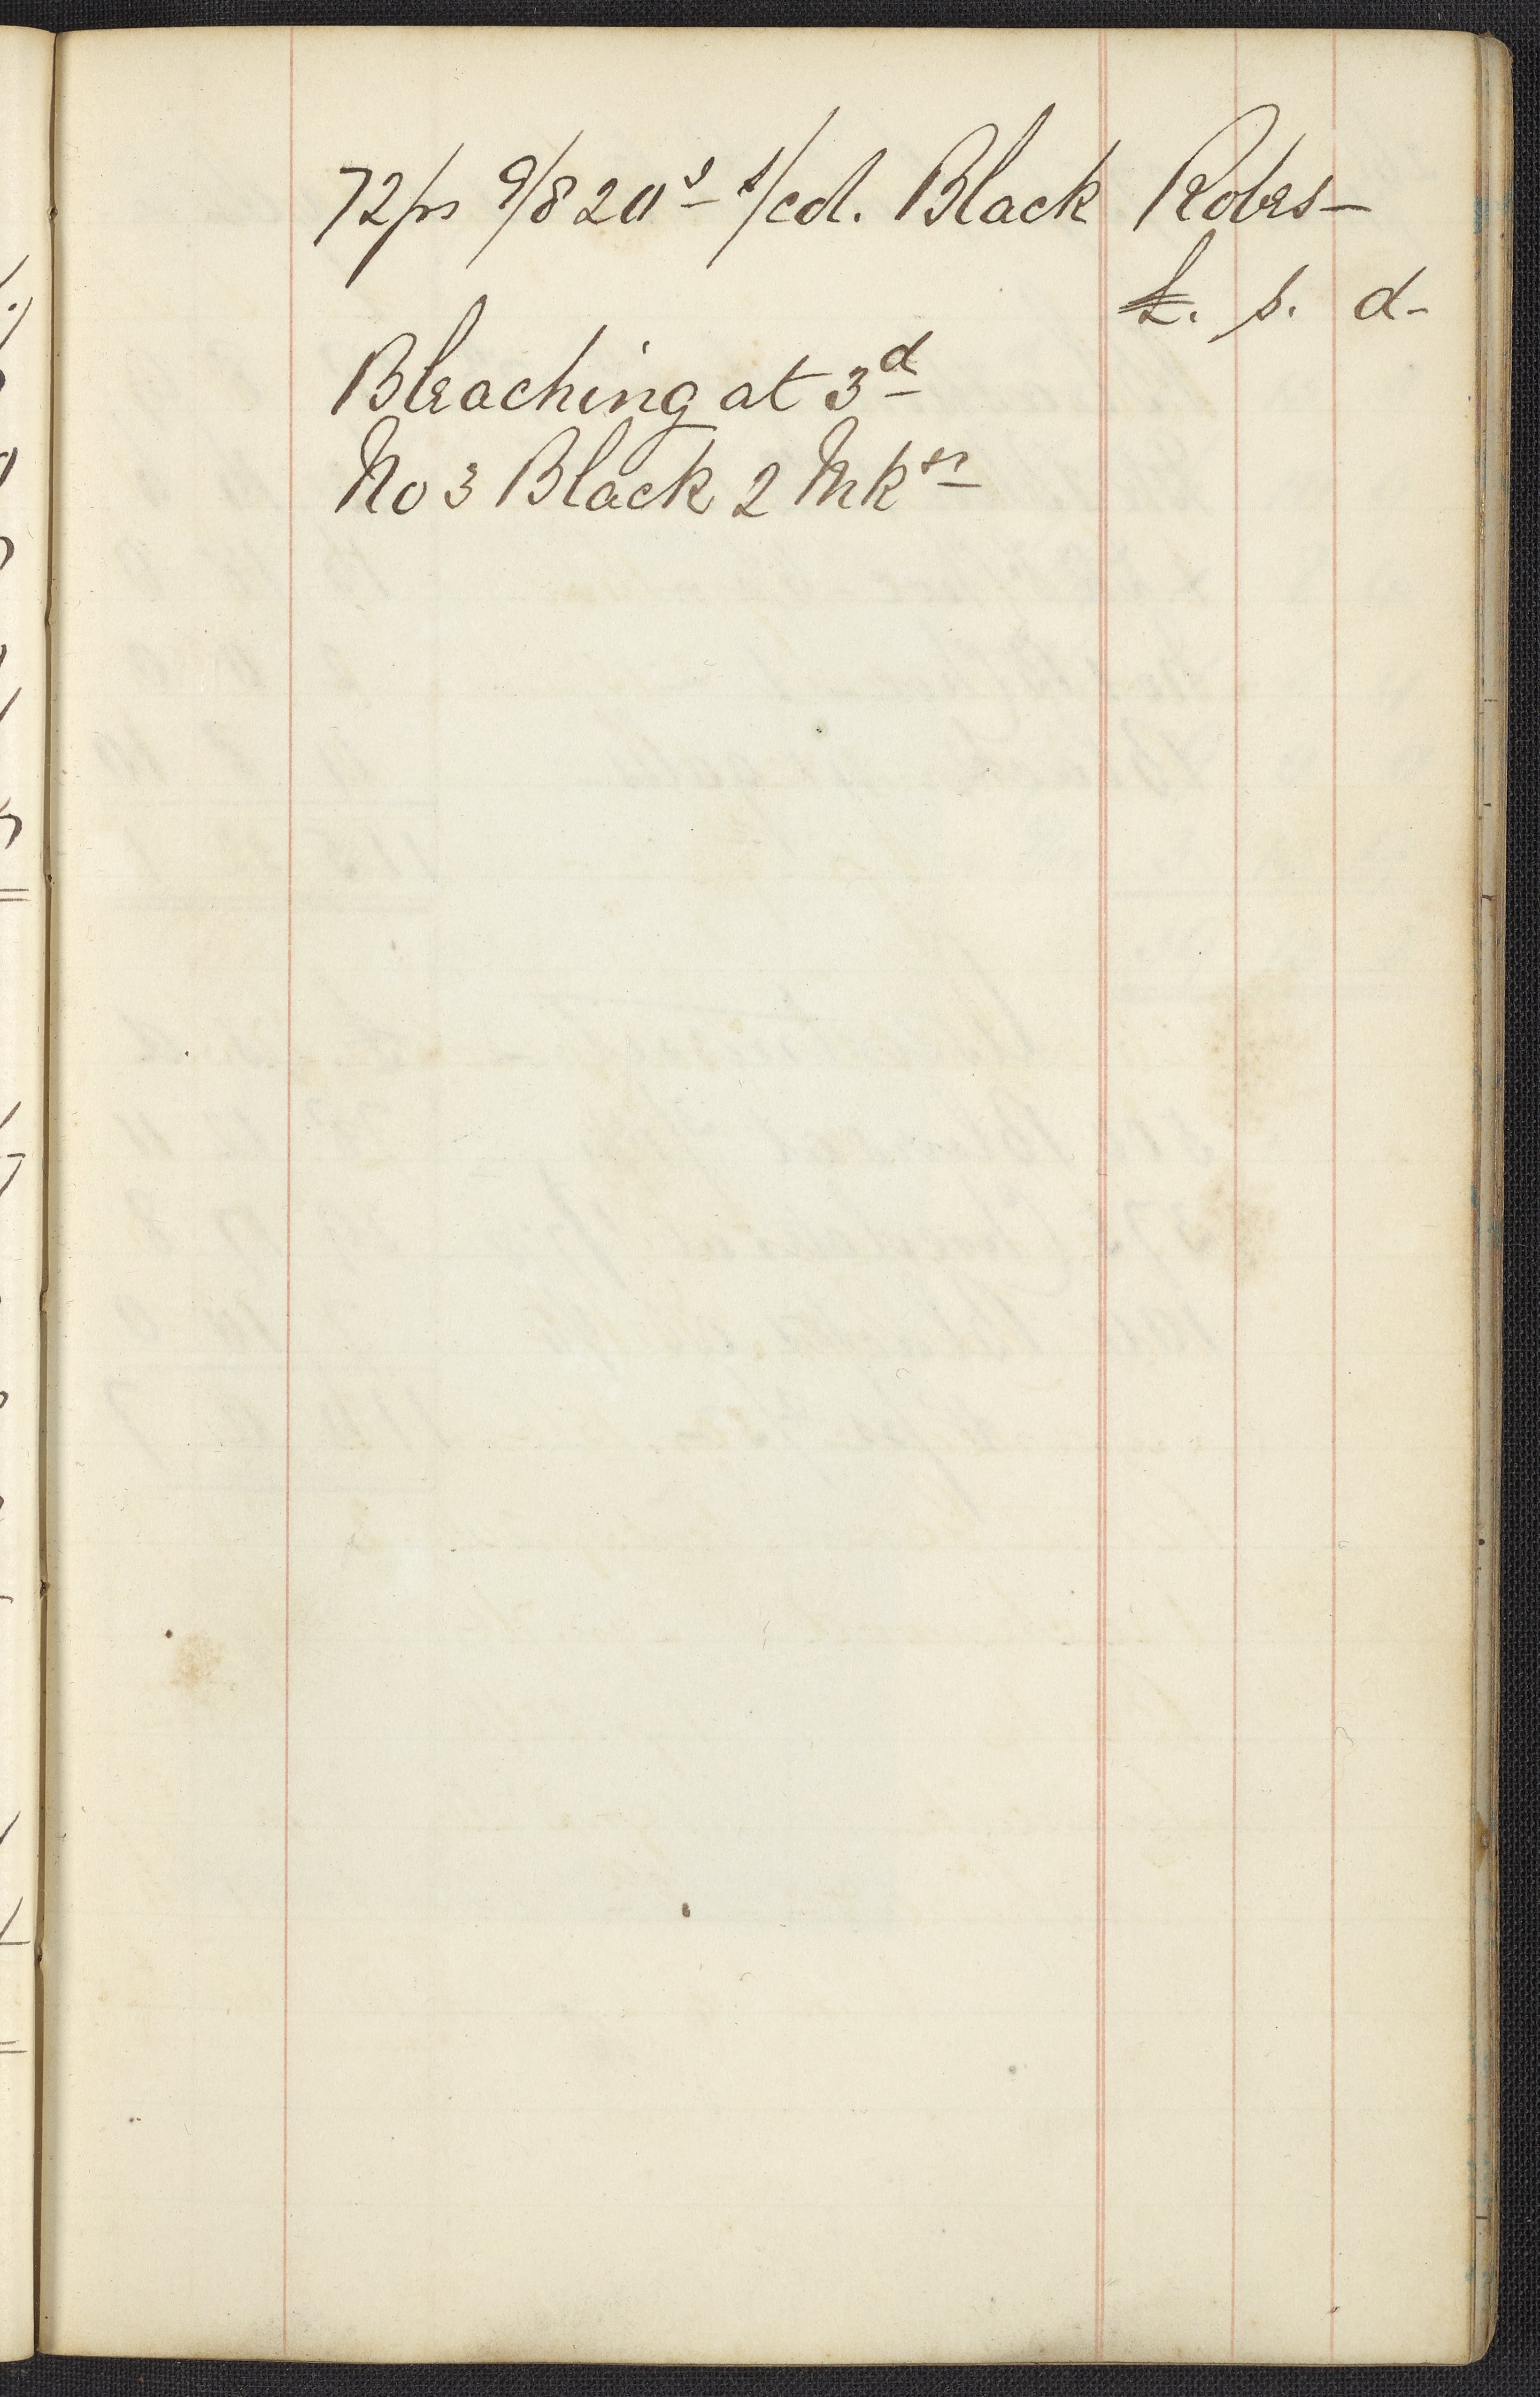 72/ps 9/8 20s 1/col. Black Robes—
£. s. d-
Bleaching at 3d
No 3 Black 2 Mk